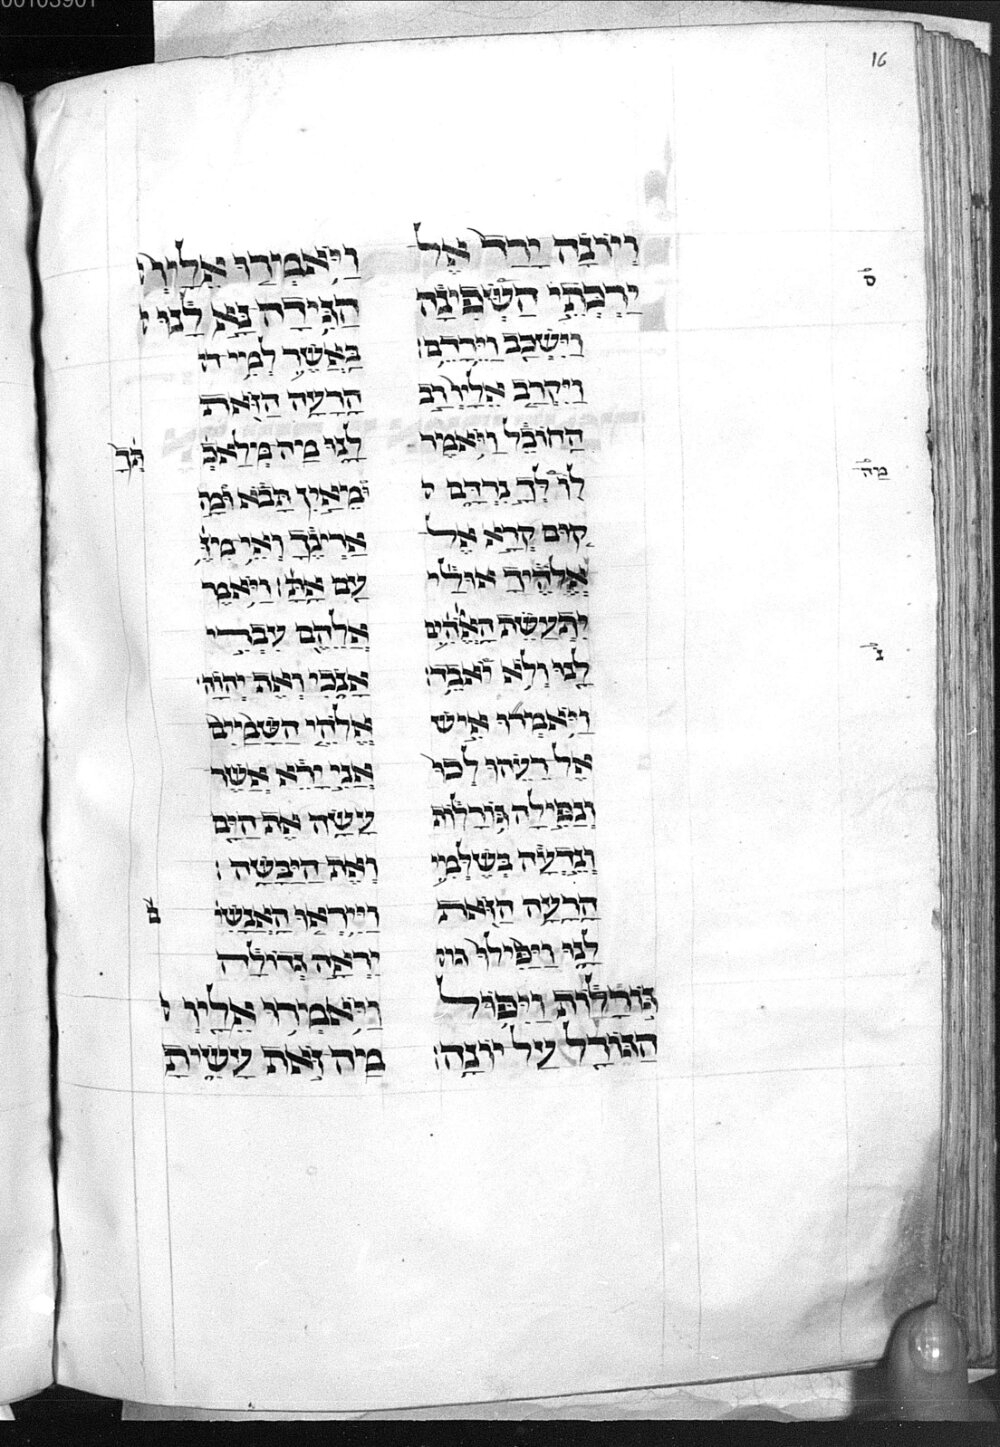 16
וְיוֹנָה יָרַד אֶל
יַרְכְּתֵי הַסְּפִינָה
וַיִּשְׁכַּב וַיֵּרָדַם׃
וַיִּקְרַב אֵלָיו רַב
הַחוֹבֵל וַיֹּאמֶר
לוֹ מַה לְּךָ נִרְדָּם
קוּם קְרָא אֶל
אֱלֹהֶיךָ אוּלַי
יִתְעַשֵּׁת הָאֱלֹהִים
לָנוּ וְלֹא נֹאבֵד׃
וַיֹּאמְרוּ אִישׁ
אֶל רֵעֵהוּ לְכוּ
וְנַפִּילָה גּוֹרָלוֹת
וְנֵדְעָה בְּשֶׁלְּמִי
הָרָעָה הַזֹּאת
לָנוּ וַיַּפִּילוּ גור
גּוֹרָלוֹת וַיִּפֹּול
הַגּוֹרָל עַל יוֹנָה׃
וַיֹּאמְרוּ אֵלָיו
הַגִּידָה נָּא לָנוּ
בַּאֲשֶׁר לְמִי הָ
הָרָעָה הַזֹּאת
לָנוּ מַה מְּלַאכְ תְּךָ
וּמֵאַיִן תָּבֹא וּמָה
אַרְצֶךָ וְאֵי מִזֶּ
עַם אָתָּה׃ וַיֹּאמֶר
אֲלֵהֶם עִבְרִי
אָנֹכִי וְאֶת יְהוָה
אֱלֹהֵי הַשָּׁמַיִם
אֲנִי יָרֵא אֲשֶׁר
עָשָׂה אֶת הַיָּם
וְאֶת הַיַּבָּשָׁה׃
וַיִּירְאוּ הָאֲנָשִׁי ם
יִרְאָה גְדוֹלָה
וַיֹּאמְרוּ אֵלָיו
מַה זֹּאת עָשִׂיתָ